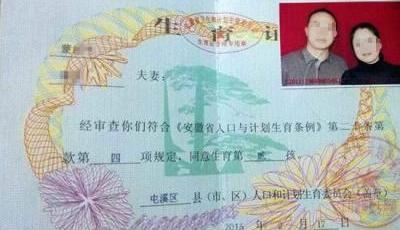 生育证
夫妻:
经审查你们符合《安徽省人口与计划生育条例》第二十条第
款第 四 项规定,同意生育第 贰 孩。
屯溪区 县(市、区)人口和计划生育委员会(盖章)
2015 年 月 17 日